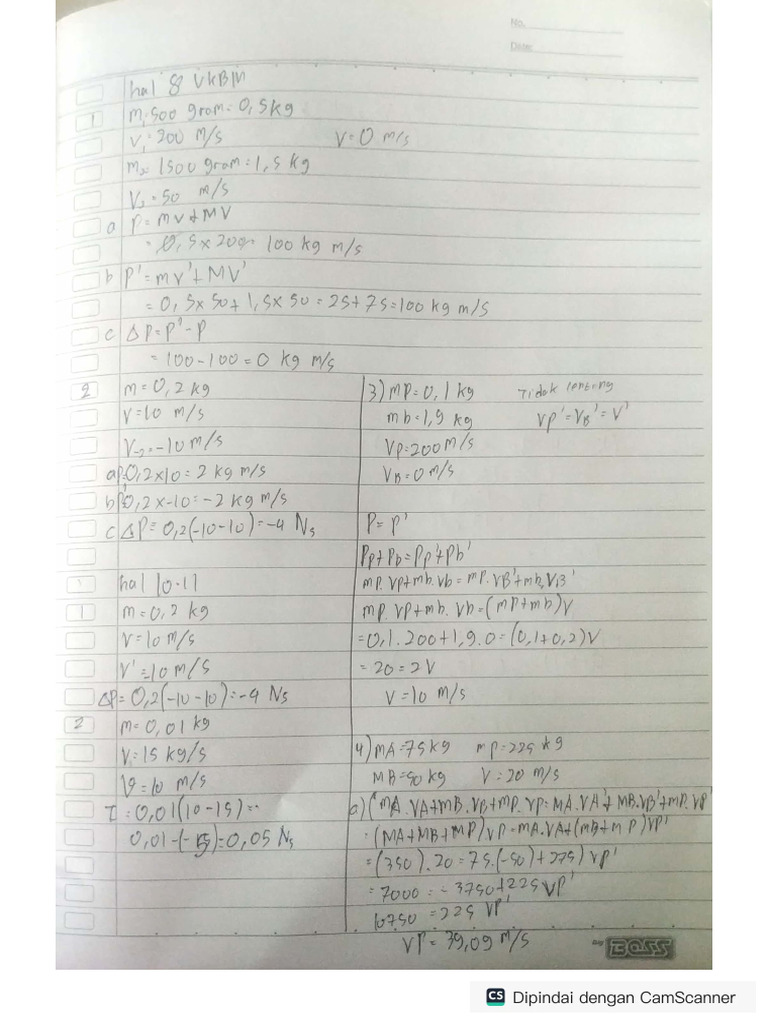 No.
Date:
hal 8 UKBM
1 m₁ 500 gram = 0,5 kg
V₁ = 200 m/s V = 0 m/s
m₂ = 1500 gram = 1,5 kg
V₂ = 50 m/s
a P = mv + MV
= 0,5 x 200 = 100 kg m/s
b P' = mv' + MV'
= 0,5 x 50 + 1,5 x 50 = 25 + 75 = 100 kg m/s
c ΔP = P' - P
= 100 - 100 = 0 kg m/s
2 m = 0,2 kg
V = 10 m/s
V₂ = -10 m/s
a P = 0,2 x 10 = 2 kg m/s
b P' 0,2 x -10 = -2 kg m/s
c ΔP = 0,2 (-10 - 10) = -4 Ns
hal 10.11
1 m = 0,2 kg
V = 10 m/s
V' = 10 m/s
ΔP = 0,2 (-10 - 10) = -4 Ns
2 m = 0,01 kg
V = 15 kg/s
V = 10 m/s
I = 0,01 (10 - 15) =
0,01 - (-5) = 0,05 Ns
3) mp = 0,1 kg Tidak lenting
mb = 1,9 kg Vp' = VB' = V'
Vp = 200 m/s
VB = 0 m/s
P = P'
Pp + Pb = Pp' + Pb'
mp. Vp + mb. Vb = mp. VB' + mb. VB'
mp. Vp + mb. Vb = (mp + mb) V
= 0,1 . 200 + 1,9 . 0 = (0,1 + 0,2) V
= 20 = 2V
V = 10 m/s
4) MA = 75 kg mp = 225 kg
MB = 50 kg V = 20 m/s
a) (MA. VA + MB. VB + MP. VP = MA. VA' + MB. VB' + MP. VP'
= (MA + MB + MP) VP = MA. VA + (MB + MP) VP'
= (350) . 20 = 75. (-50) + 275) VP'
= 7000 = - 3750 + 225 VP'
10750 = 225 VP'
VP = 39,09 m/s
BOSS
CS Dipindai dengan CamScanner